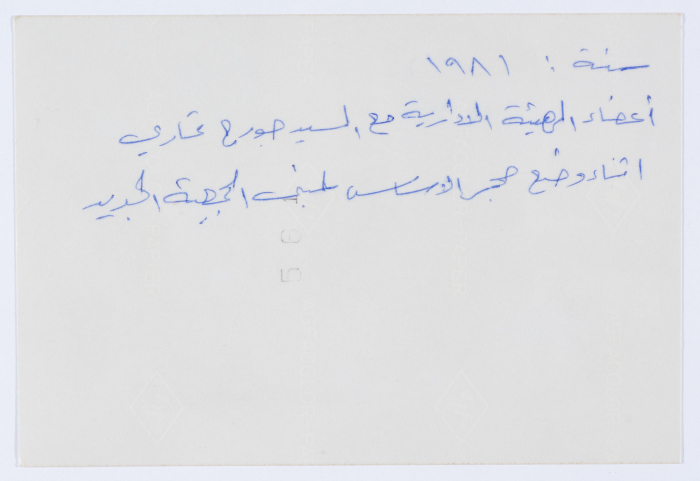 سنة : ١٩٨١
أعضاء الهيئة الادارية مع السيد جورج
اثناء وضع حجر الاساس لمبنى الجمعية الجديد